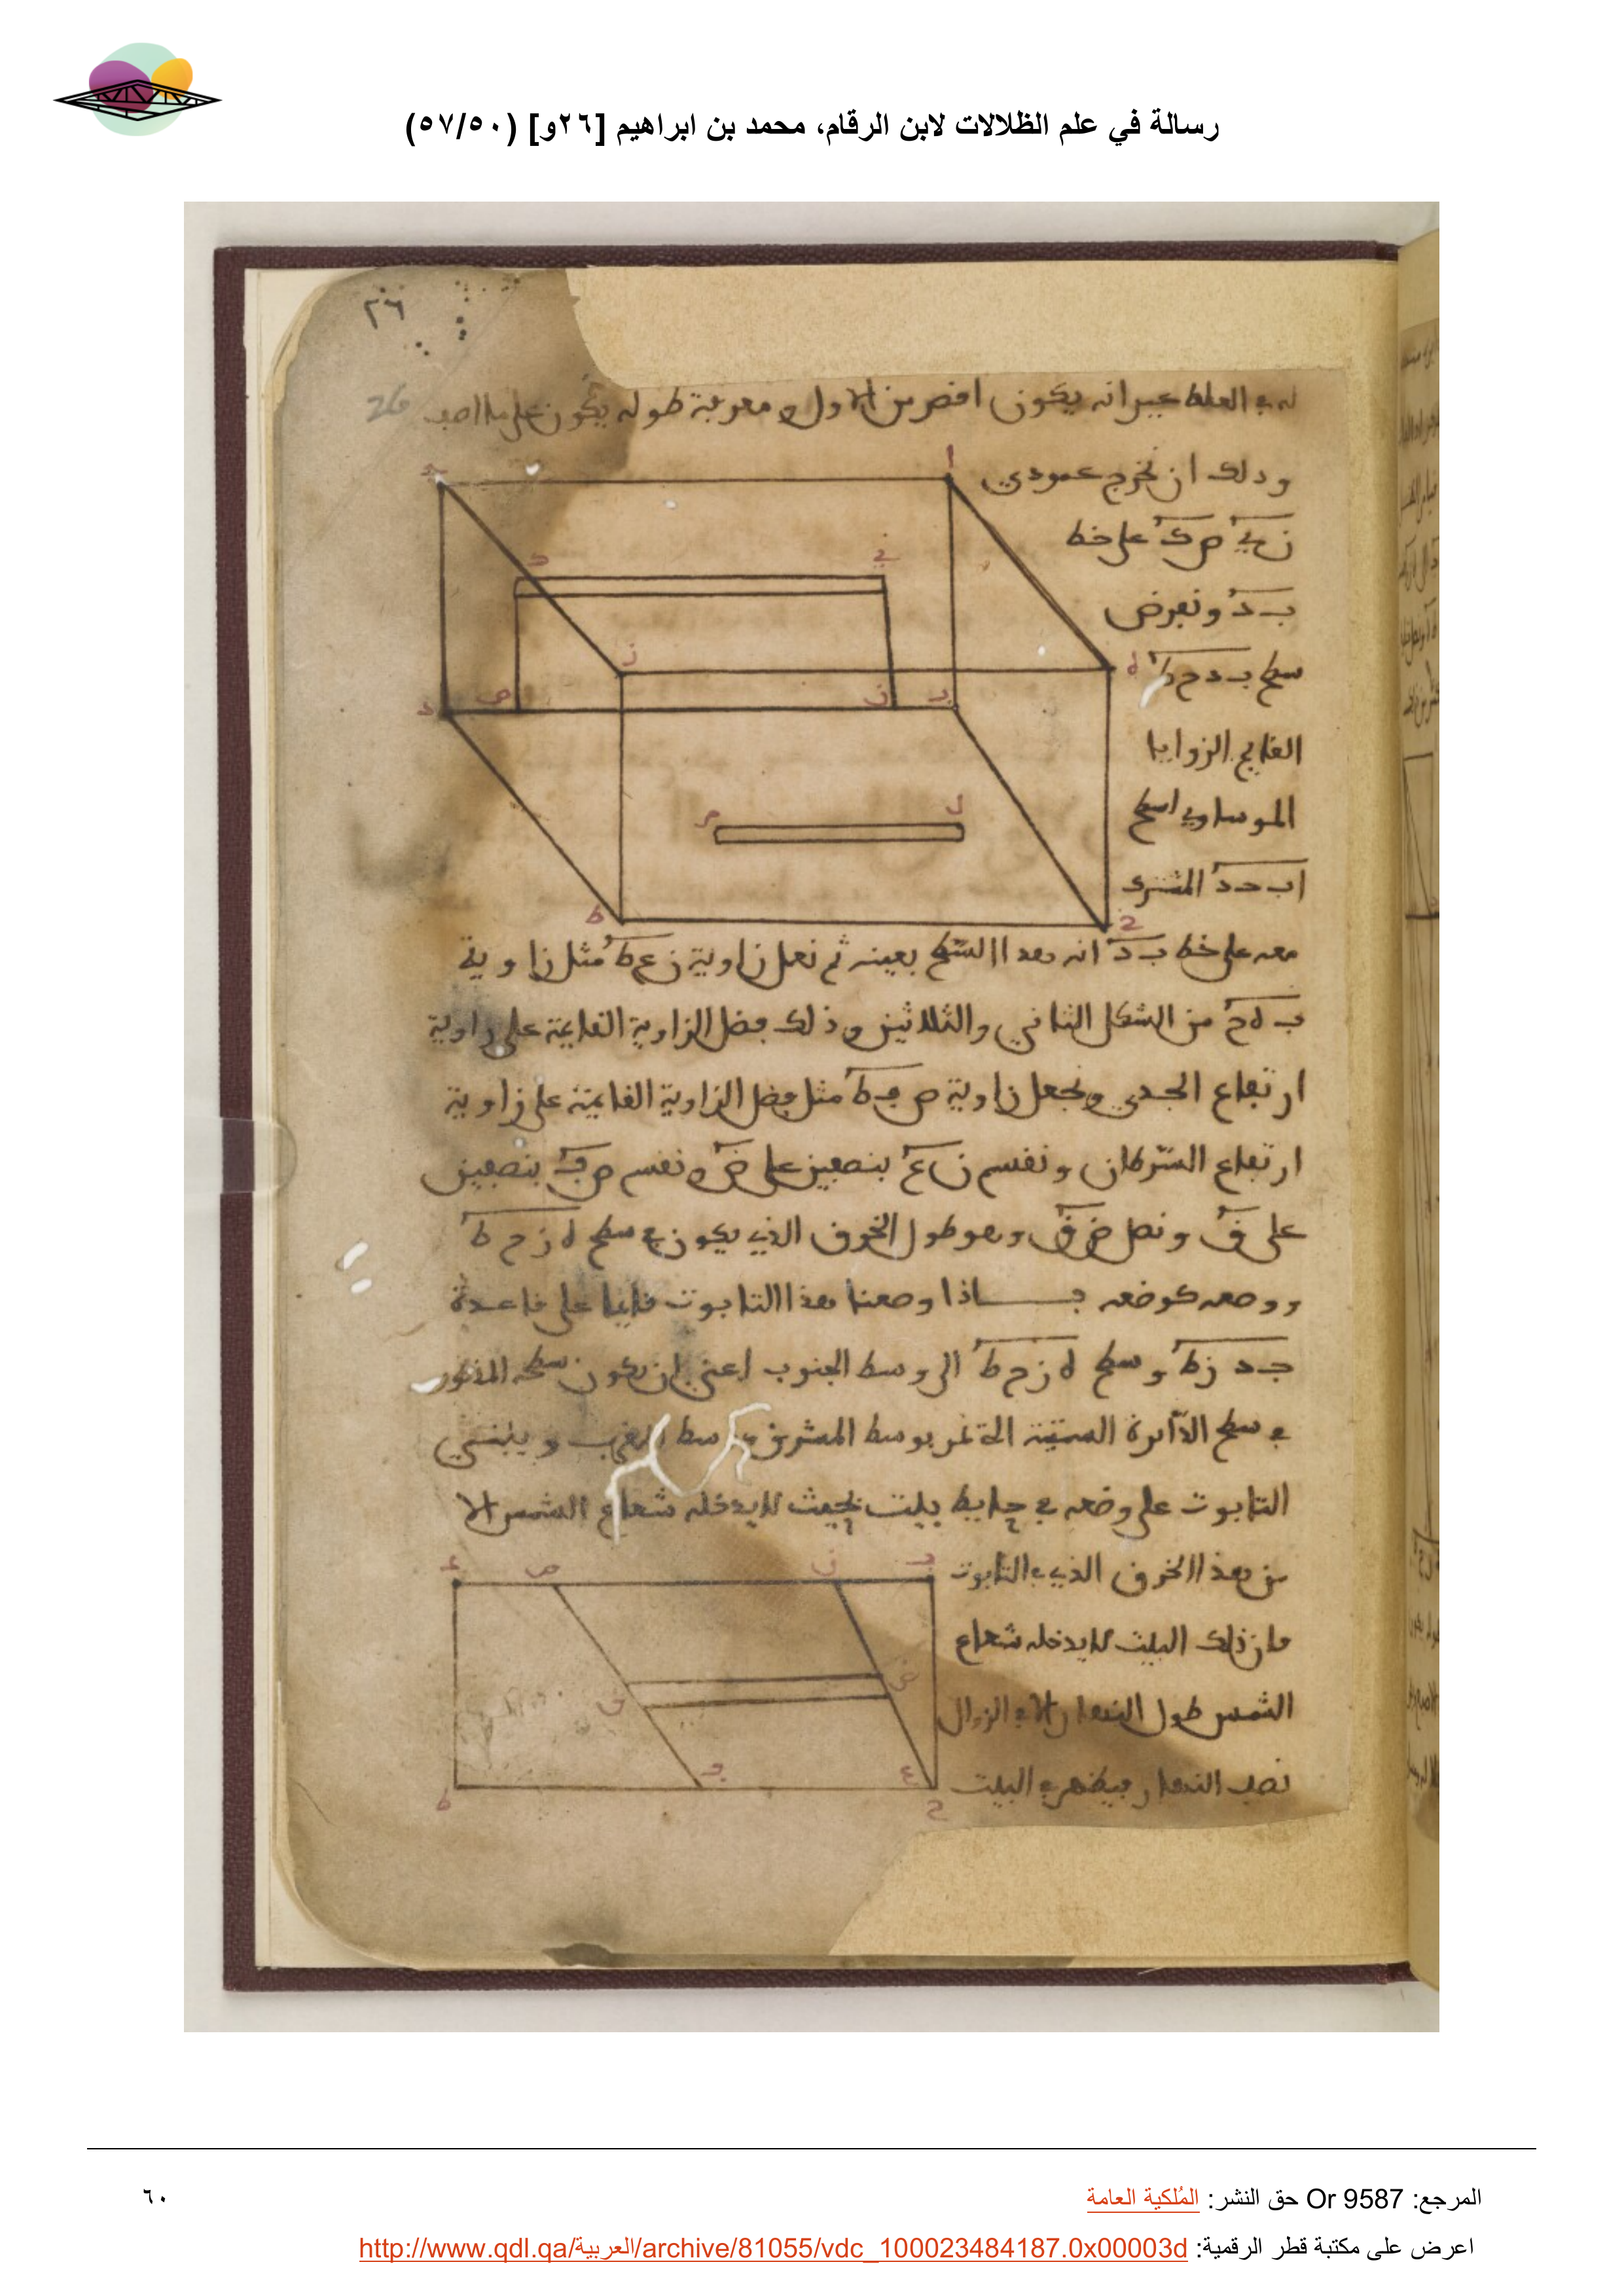 رسالة في علم الظلالات لابن الرقام، محمد بن ابراهيم [٢٦و] (٥٧/٥٠)
٢٦
26
له في الغلظ غير انه يكون اقصر من الاول ومعرفة طوله يكون على ما اصف
وذلك ان نخرج عمودي
ن ي ص ك على خط
ب د ونعرض
سطح ب د ح ط
القايم الزوايا
الموساوي اسطح
ا ب ح د المشترك
معه على خط ب د انه هذا السطح بعينه ثم نعمل زاوية ن ع ط مثل زاوية
ب ه ح من الشكل الثاني والثلاثين وذلك فضل الزاوية القايمة على زاوية
ارتفاع الجدي ونجعل زاوية ص ف ط مثل فضل الزاوية القايمة على زاوية
ارتفاع السرطان ونقسم ن ع بنصفين على ض ونقسم ص ف بنصفين
على ق ونصل ض ق وهو طول الخرق الذي يكون في سطح ه ز ح ط
ووضعه كوضعه فاذا وضعنا هذا التابوت قايما على قاعدة
ج د ز ط وسطح ه ز ح ط الى وسط الجنوب اعني ان يكون سطحه المذكور
في سطح الدائرة التي تمر بوسط المشرق ووسط المغرب ويبنى
التابوت على وضعه في حايط بيت بحيث لا يدخله شعاع الشمس الا
من هذا الخرق الذي في التابوت
فان ذلك البيت لا يدخله شعاع
الشمس طول النهار الا في الزوال
نصف النهار فيظهر في البيت
المرجع: Or 9587 حق النشر: المُلكية العامة
٦٠
اعرض على مكتبة قطر الرقمية: http://www.qdl.qa/العربية/archive/81055/vdc_100023484187.0x00003d